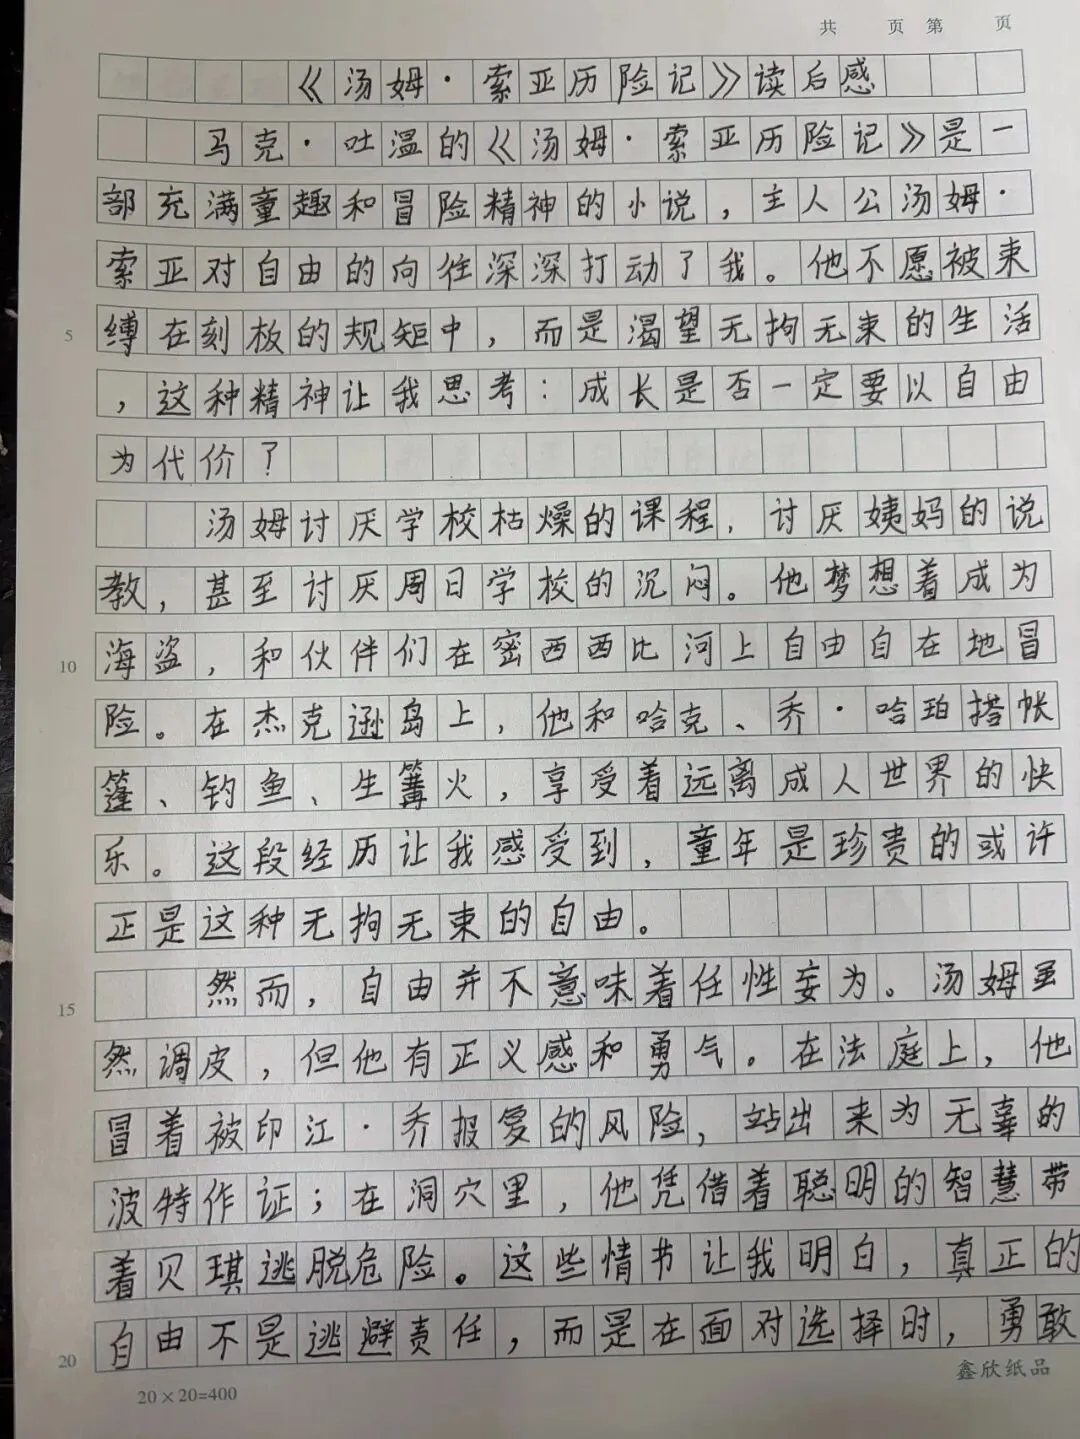 共 页 第 页
《汤姆·索亚历险记》读后感
马克·吐温的《汤姆·索亚历险记》是一
部充满童趣和冒险精神的小说，主人公汤姆·
索亚对自由的向往深深打动了我。他不愿被束
5 缚在刻板的规矩中，而是渴望无拘无束的生活
，这种精神让我思考：成长是否一定要以自由
为代价？
汤姆讨厌学校枯燥的课程，讨厌姨妈的说
教，甚至讨厌周日学校的沉闷。他梦想着成为
10 海盗，和伙伴们在密西西比河上自由自在地冒
险。在杰克逊岛上，他和哈克、乔·哈珀搭帐
篷、钓鱼、生篝火，享受着远离成人世界的快
乐。这段经历让我感受到，童年是珍贵的或许
正是这种无拘无束的自由。
15 然而，自由并不意味着任性妄为。汤姆虽
然调皮，但他有正义感和勇气。在法庭上，他
冒着被印江·乔报复的风险，站出来为无辜的
波特作证；在洞穴里，他凭借着聪明的智慧带
着贝琪逃脱危险。这些情节让我明白，真正的
20 自由不是逃避责任，而是在面对选择时，勇敢
20×20=400
鑫欣纸品